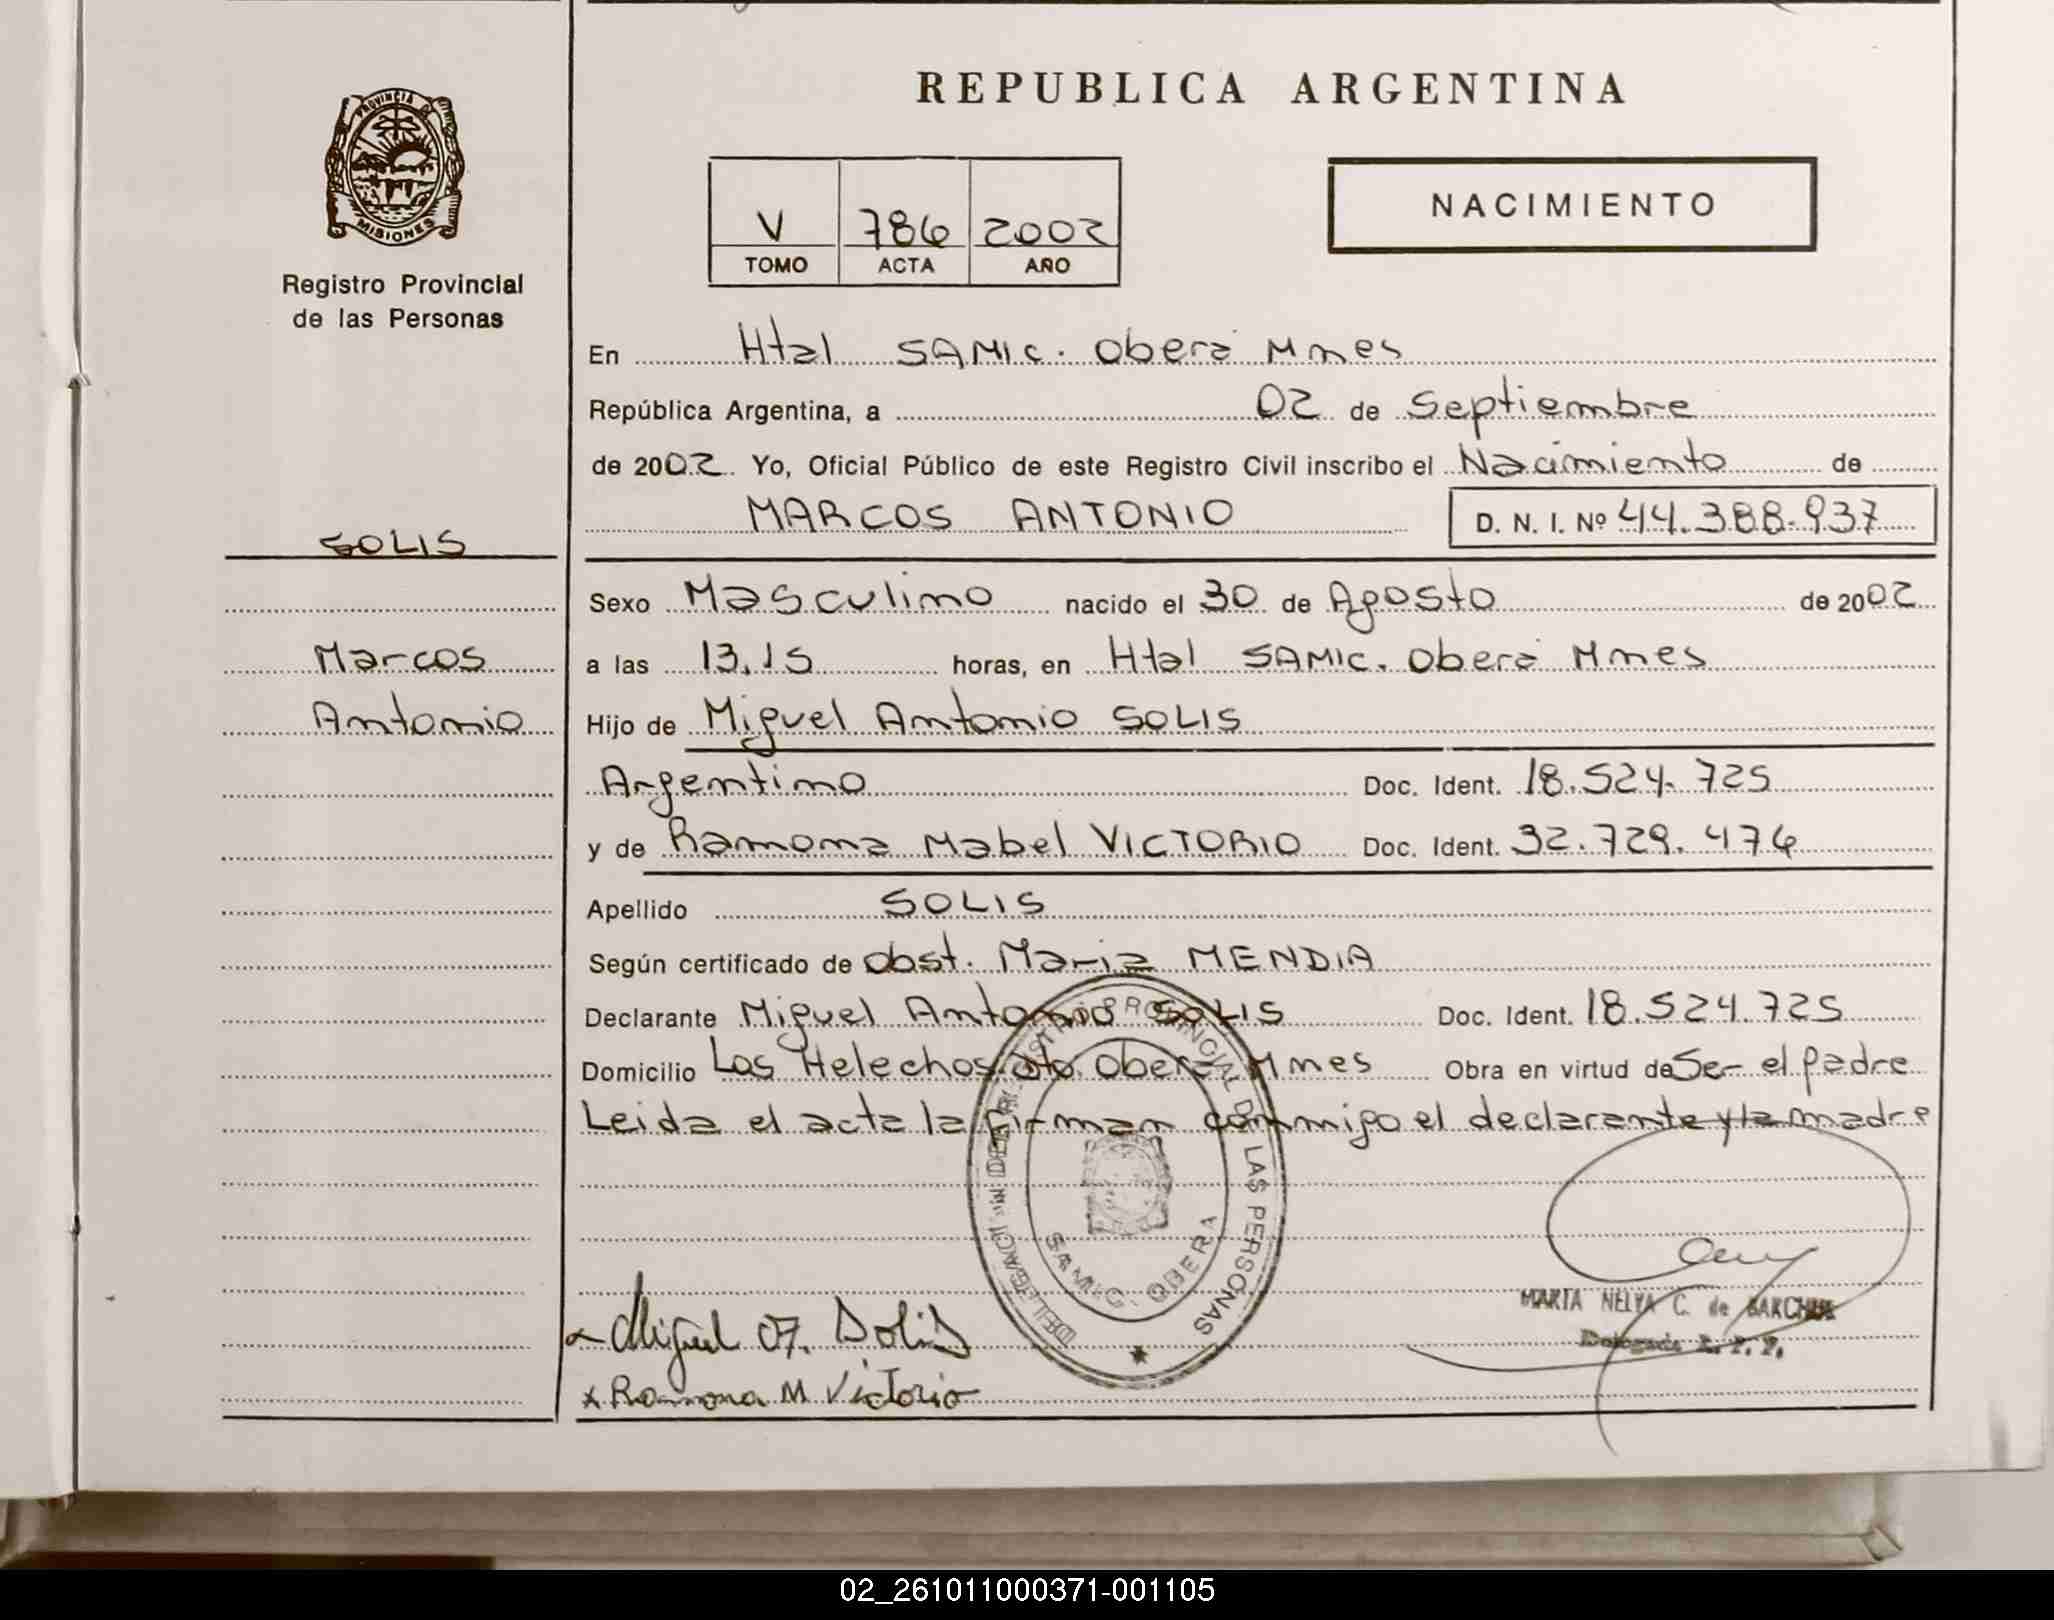 REPUBLICA ARGENTINA
PROVINCIA D
MISIONES
Registro Provincial
de las Personas
V 786 2002
TOMO ACTA AÑO
NACIMIENTO
En Htal SAMIC. Oberá Mnes
República Argentina, a 02 de Septiembre
de 2002. Yo, Oficial Público de este Registro Civil inscribo el Nacimiento de
MARCOS ANTONIO D. N. I. Nº 44.388.937
SOLIS
Marcos
Antonio
Sexo Masculino nacido el 30 de Agosto de 2002
a las 13.15 horas, en Htal SAMIC. Oberá Mnes
Hijo de Miguel Antonio SOLIS
Argentino Doc. Ident. 18.524.725
y de Ramona Mabel VICTORIO Doc. Ident. 32.729.476
Apellido SOLIS
Según certificado de Obst. Maria MENDIA
Declarante Miguel Antonio SOLIS Doc. Ident. 18.524.725
Domicilio Los Helechos dto. Oberá Mnes Obra en virtud de Ser el padre
Leida el acta la firman conmigo el declarante y la madre
REGISTRO PROVINCIAL DE LAS PERSONAS
SAMIC - OBERA
MARTA NELVA C. de
Delegada R. P. P.
Miguel A. Solis
x Ramona M Victorio
02_261011000371-001105